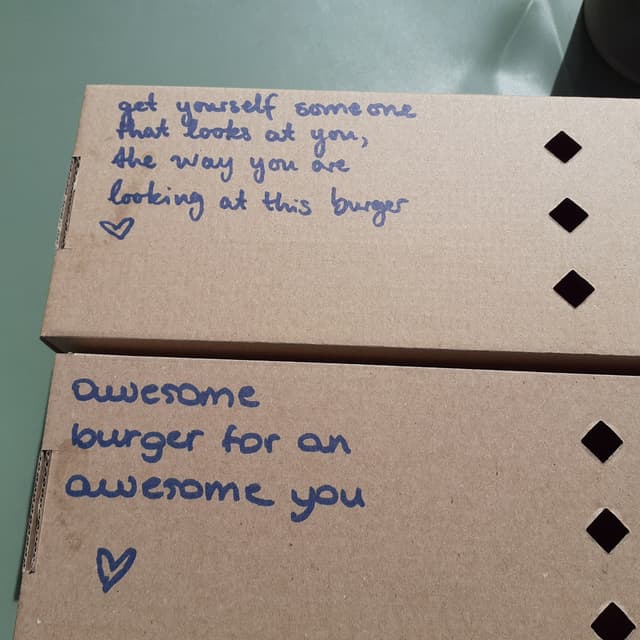 get yourself someone
that looks at you,
the way you are
looking at this burger
awesome
burger for an
awesome you